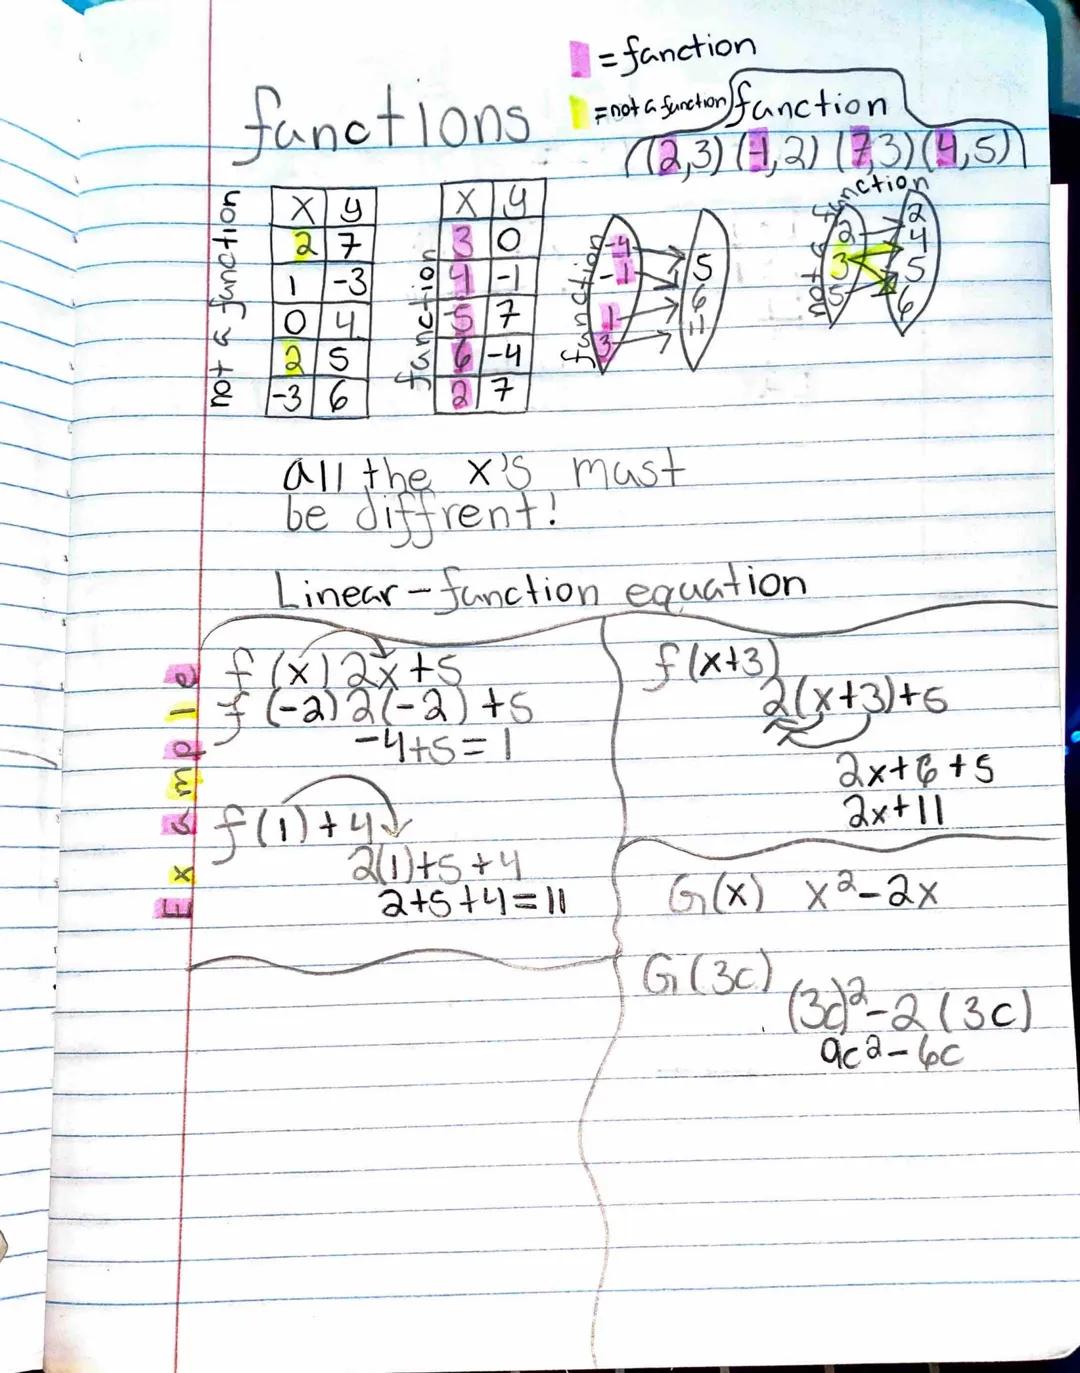 = function
= not a function
functions
function
((2,3) (-1,2) (7,3) (4,5))
not a function
x y
2 7
1 -3
0 4
2 5
-3 6
function
x y
3 0
4 -1
5 7
6 -4
2 7
function
-4
-1 5
1 6
3 11
not a function
2 2
3 4
5 5
6
all the x's must
be diffrent!
Linear-function equation
Example
f(x) 2x+5
f(-2) 2(-2)+5
-4+5=1
f(1)+4
2(1)+5+4
2+5+4=11
f(x+3)
2(x+3)+5
2x+6+5
2x+11
G(x) x²-2x
G(3c)
(3c)²-2(3c)
9c²-6c